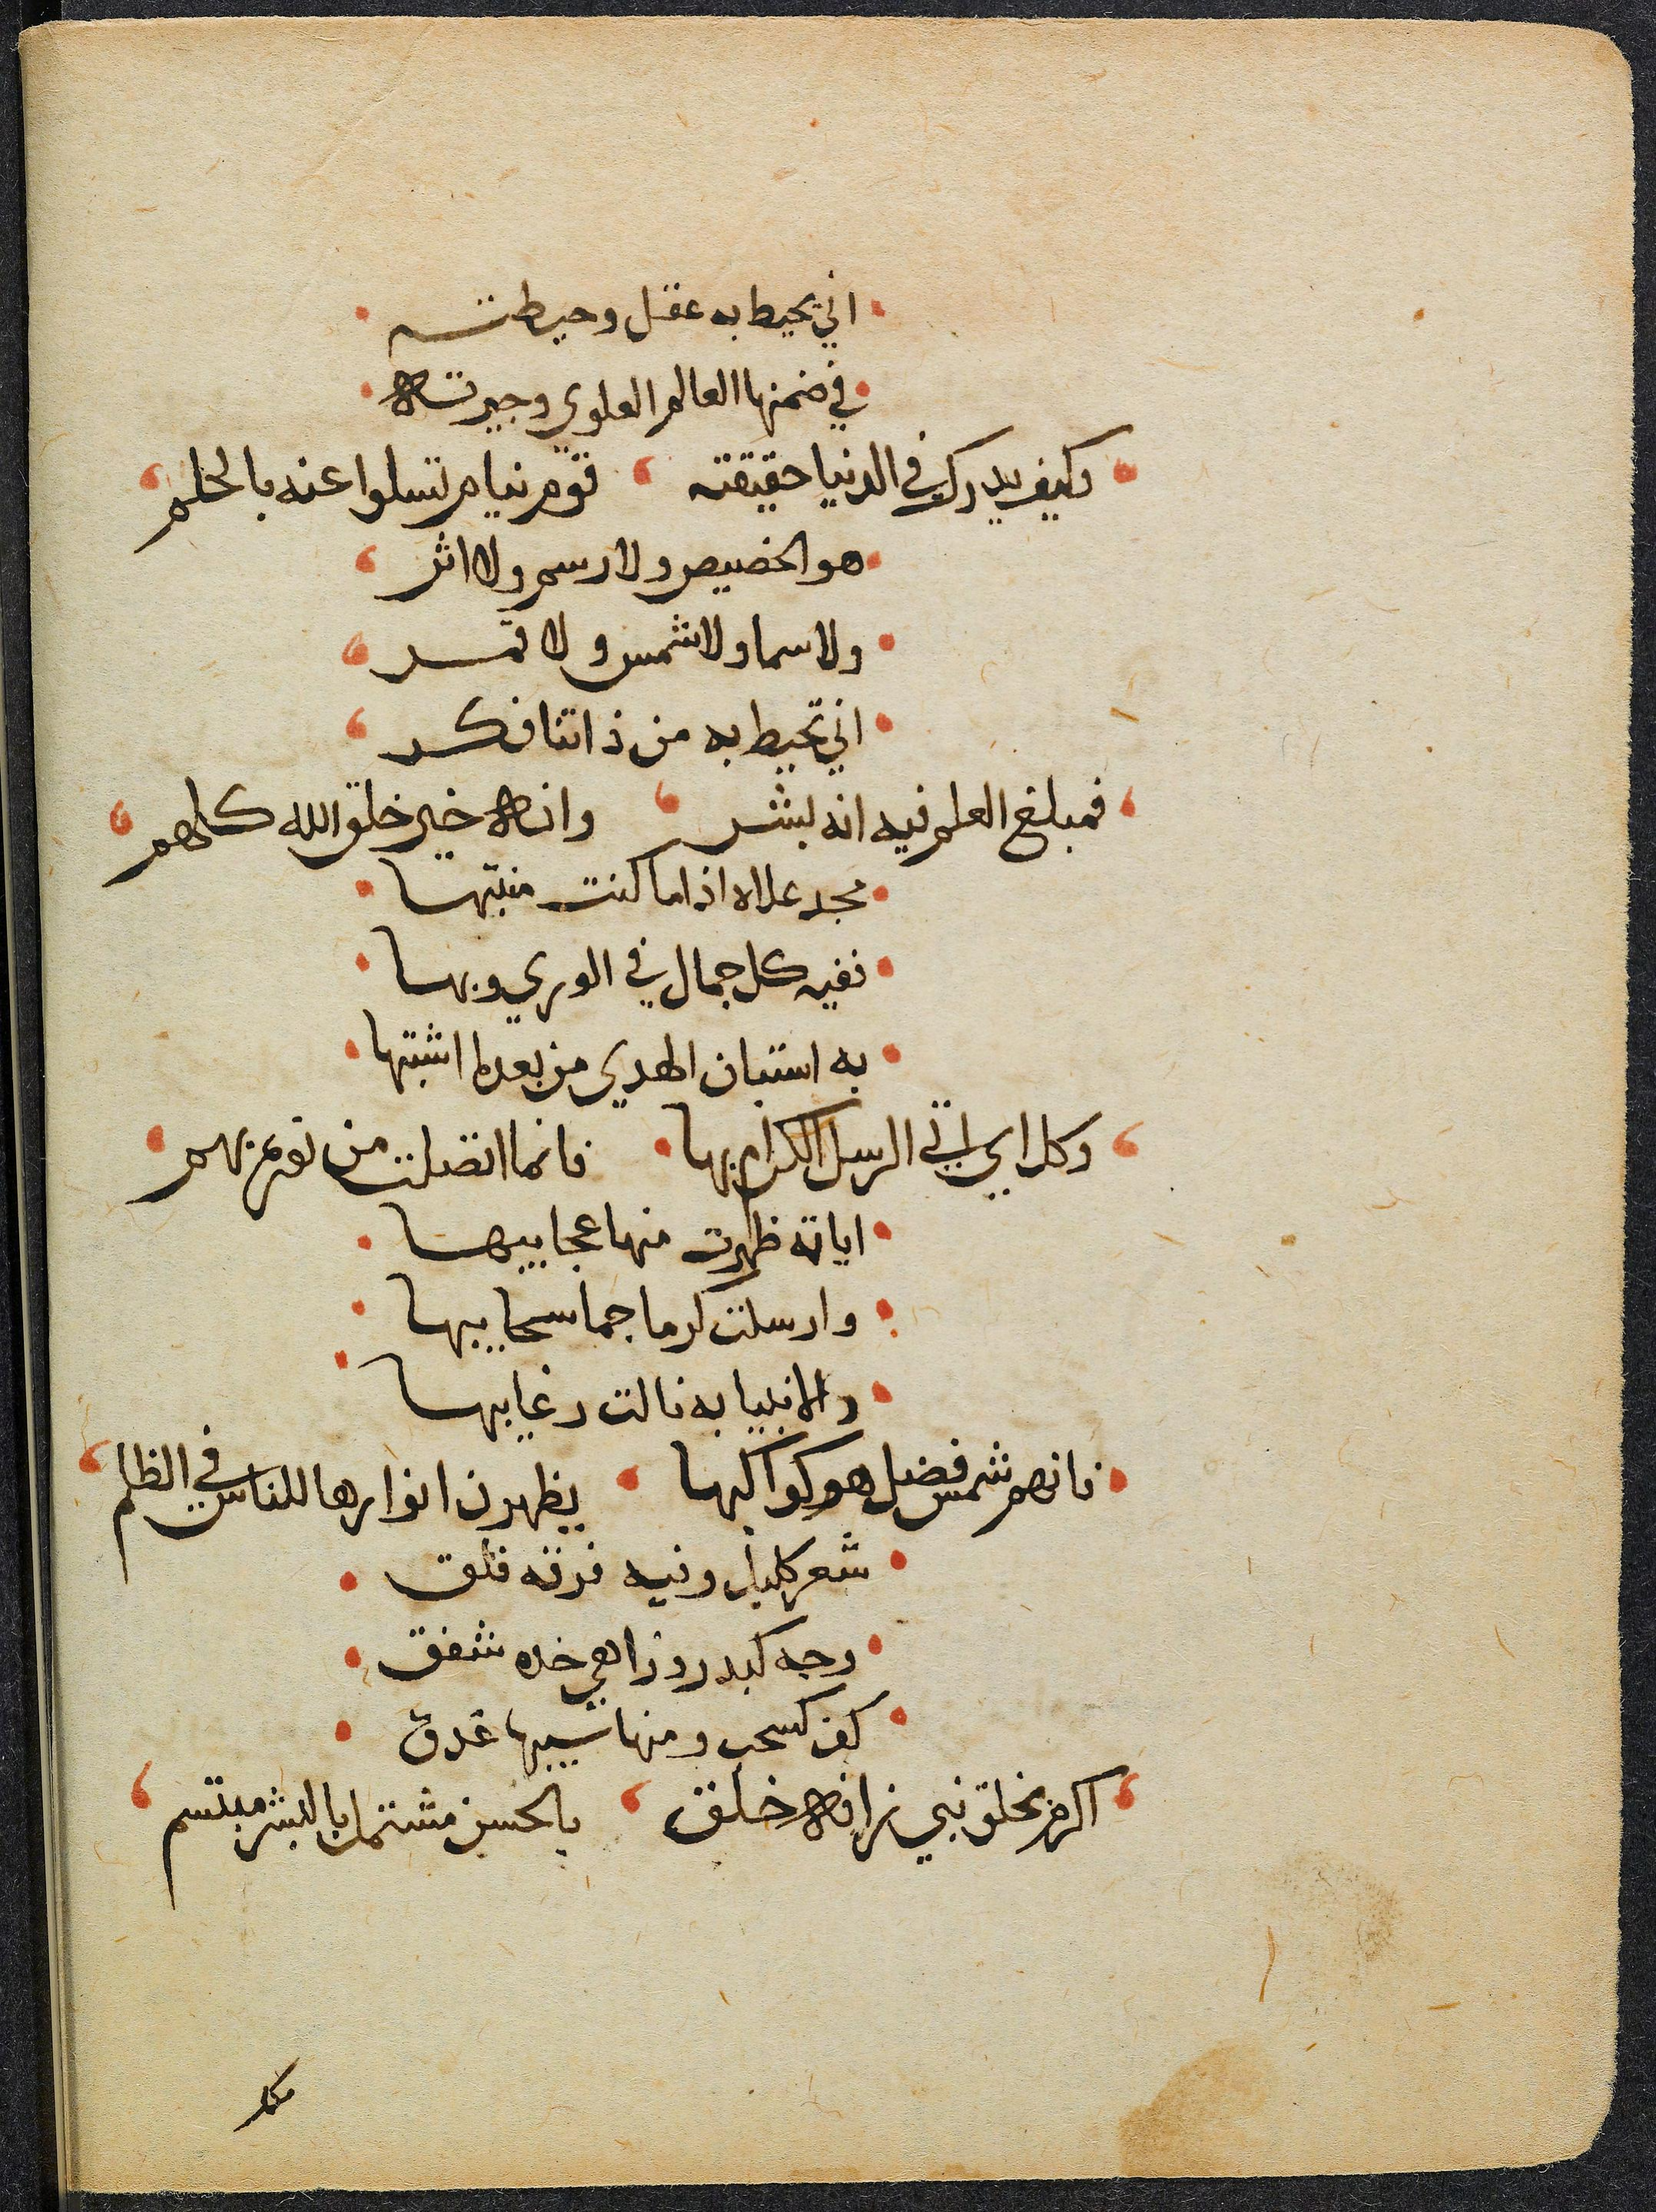 اني يحيط به عقل وحيطته
في ضمنها العالم العلوي وجيرته
وكيف يدرك في الدنيا حقيقته قوم نيام تسلوا عنه بالحلم
هو الخصيص ولا رسم ولا اثر
ولا سما ولا شمس ولا قمر
اني تحيط به من ذاتنا فكر
فمبلغ العلم فيه انه بشر وانه خير خلق الله كلهم
مجد علاه اذا ما كنت منتبها
ففيه كل جمال في الوري وبها
به استبان الهدي من بعد ما اشتبها
وكل اي اتي الرسل الكرام بها فانما اتصلت من نوره بهم
اياته ظهرت منها عجايبها
وارسلت كرما جما سحايبها
والانبيا به نالت رغايبها
فانهم شمس فضل هم كواكبها يظهرن انوارها للناس في الظلم
شعر كليل وفيه فرقه فلق
وجه كبدر وزاهي خده شفق
كف كسحب ومنها سيبها غدق
اكرم بخلق نبي زانه خلق بالحسن مشتمل بالبشر متسم